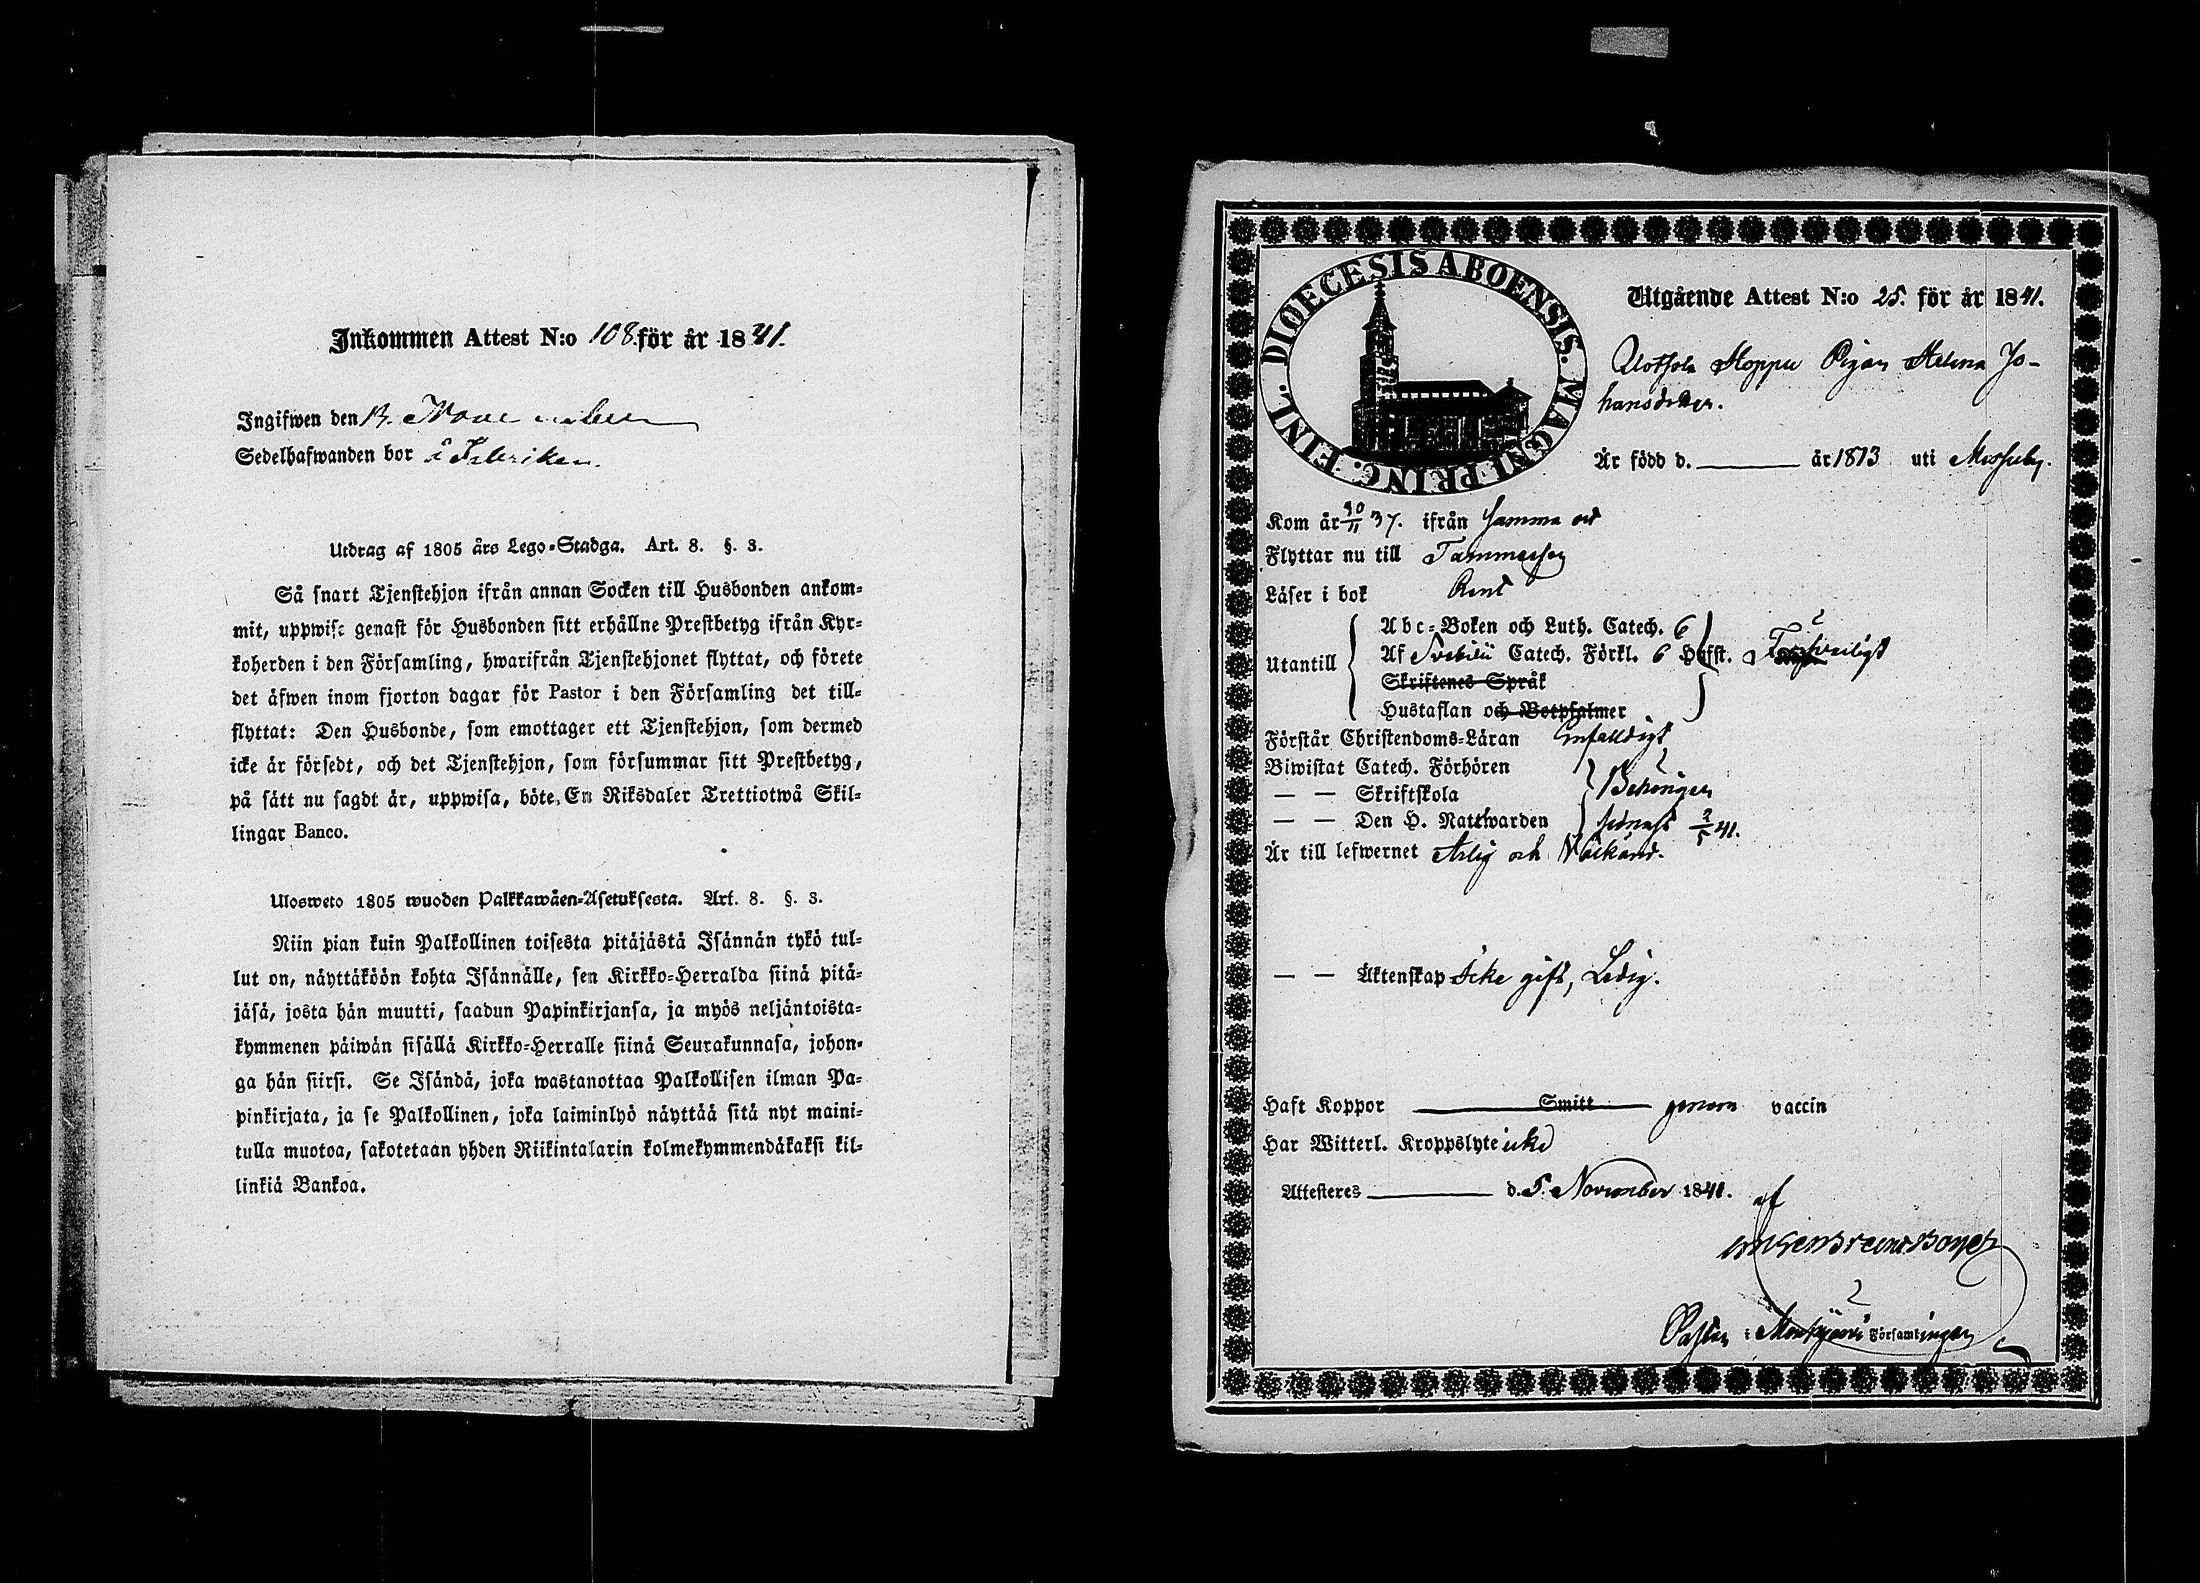 Inkommen Attest N:o 108. för år 1841.
Ingifwen den 13. November
Sedelhafwanden bor å Fabriken.
Utdrag af 1805 års Lego-Stadga. Art. 8. §. 3.
Så snart Tjenstehjon ifrån annan Socken till Husbonden ankom-
mit, uppwise genast för Husbonden sitt erhållne Prestbetyg ifrån Kyr-
koherden i den Församling, hwarifrån Tjenstehjonet flyttat, och förete
det äfwen inom fjorton dagar för Pastor i den Församling det till-
flyttat: Den Husbonde, som emottager ett Tjenstehjon, som dermed
icke är försedt, och det Tjenstehjon, som försummar sitt Prestbetyg,
på sätt nu sagdt är, uppwisa, böte, En Riksdaler Trettiotwå Skil-
lingar Banco.
Ulosweto 1805 wuoden Palkkawäen-Asetuksesta. Art. 8. §. 3.
Niin pian kuin Palkollinen toisesta pitäjästä Isännän tykö tul-
lut on, näyttäköön kohta Isännälle, sen Kirkko-Herralda siinä pitä-
jäsä, josta hän muutti, saadun Papinkirjansa, ja myös neljäntoista-
kymmenen päiwän sisällä Kirkko-Herralle siinä Seurakunnasa, johon-
ga hän siirsi. Se Isändä, joka wastanottaa Palkollisen ilman Pa-
pinkirjata, ja se Palkollinen, joka laiminlyö näyttää sitä nyt maini-
tulla muotoa, sakotetaan yhden Riikintalarin kolmekymmendäkaksi kil-
linkiä Bankoa.
DIOECESIS ABOENSIS. MAGNI PRINC. FINL.
Utgående Attest N:o 25. för år 1841.
Pigan Helena Jo-
hansdotter.
Är född d. år 1813 uti
Kom år 10/11 37. ifrån samma ort
Flyttar nu till Tammerfors
Läser i bok Rent
Abc-Boken och Luth. Catech. 6
Utantill Af Svebilii Catech. Förkl. 6 Hufst. Försvarligt
Skriftenes Språk
Hustaflan och Botpsalmer
Förstår Christendoms-Läran Enfaldigt
Biwistat Catech. Förhören
— — Skriftskola Behörigen
— — Den H. Nattwarden senast 2/5 41.
Är till lefwernet Ärlig och Wälkänd.
— — Äktenskap Icke gift, Ledig.
Haft Koppor Smitt genom vaccin
Har Witterl. Kroppslyte icke
Attesteres d. 5. November 1841. af
Pastor i Församlingen